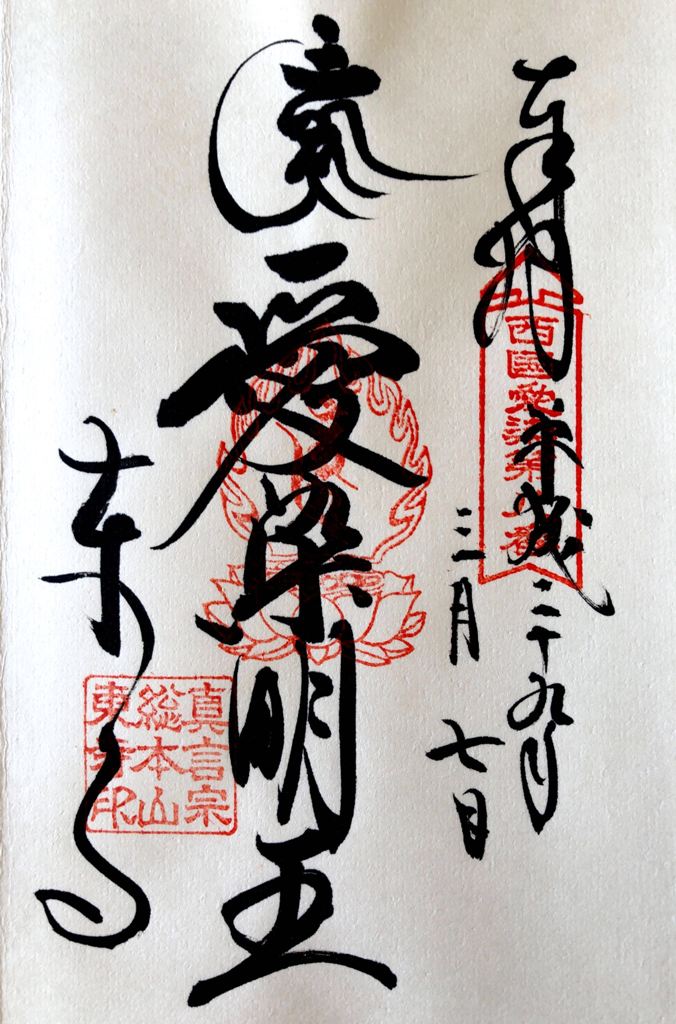 奉拝
西國愛染第八番
平成二十九年
三月七日
愛染明王
東寺
真言宗
総本山
東寺印